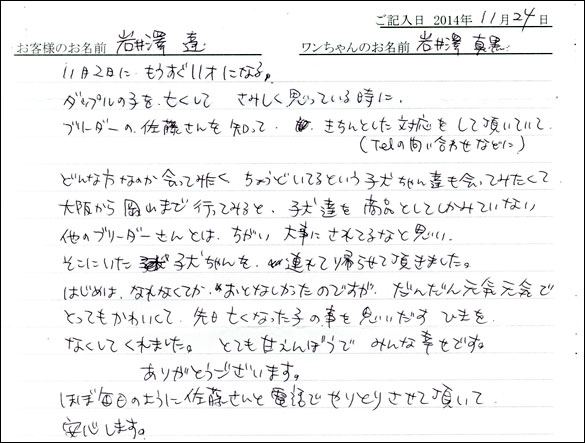 ご記入日 2014年 11月 24日
お客様のお名前 岩井澤 達 ワンちゃんのお名前 岩井澤 真黒
11月2日に もうすぐ11才になる。
ダップルの子を 亡くして さみしく思っている時に、
ブリーダーの、佐藤さんを知って、 きちんとした対応をして頂いていて
(Telの問い合わせなどに)
どんな方なのか会ってみたく ちょうどいてるという子犬ちゃん達も会ってみたくて
大阪から岡山まで行ってみると、子犬達を商品としてしかみていない
他のブリーダーさんとは、ちがい 大事にされてるなと思い、
そこにいた 子犬ちゃんを、連れて帰らせて頂きました。
はじめは、なれなくてか、おとなしかったのですが、だんだん元気元気で
とってもかわいくて、先日亡くなった子の事を思いだす ひまを、
なくしてくれました。 とても甘えんぼうで みんな幸せです。
ありがとうございます。
ほぼ毎日のように佐藤さんと電話でやりとりさせて頂いて
安心します。